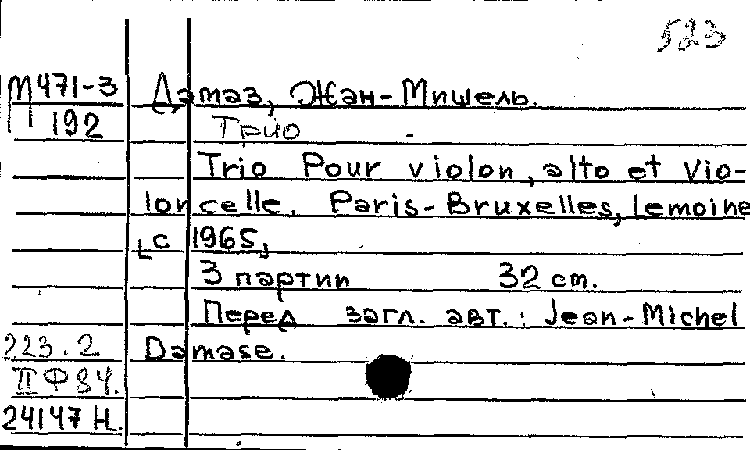 523
М471-3 Дамаз, Жан-Мишель.
192 Трио
Trio Pour violon, alto et vio-
loncelle. Paris-Bruxelles, Lemoine
[с 1965]
3 партии 32 cm.
Перед загл. авт.: Jean-Michel
223.2 Damase.
II Ф 84.
24147 Н.